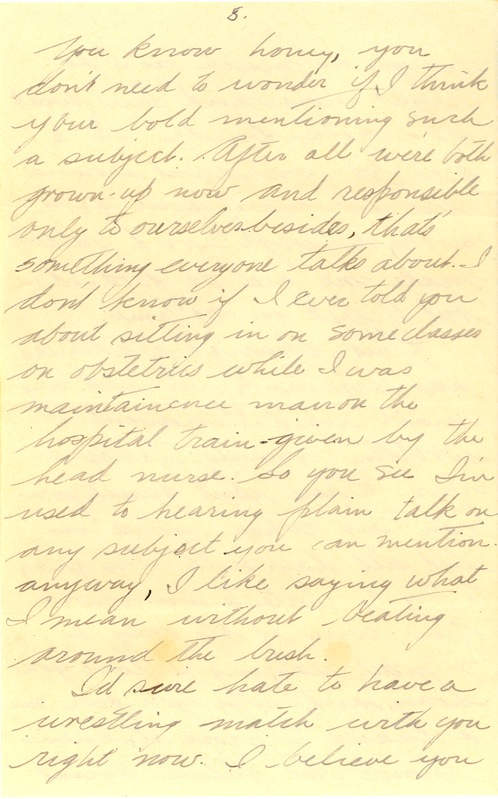 8.
You know honey, you
don't need to wonder if I think
your bold mentioning such
a subject. After all we're both
grown-up now and responsible
only to ourselves besides, that's
something everyone talks about. I
don't know if I ever told you
about sitting in on some classes
on obstetrics while I was
maintainence man on the
hospital train - given by the
head nurse. So you see I'm
used to hearing plain talk on
any subject you can mention.
anyway, I like saying what
I mean without beating
around the bush.
I'd sure hate to have a
wrestling match with you
right now. I believe you